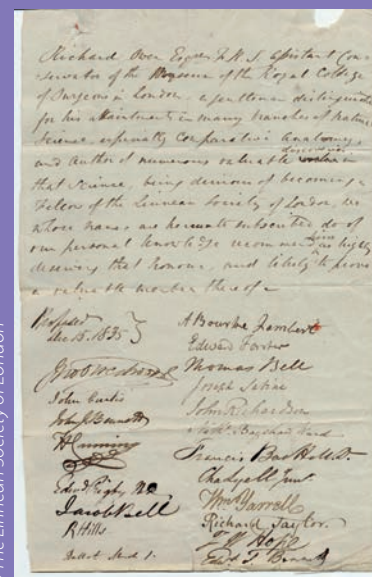 Richard Owen Esquire F.R.S. Assistant Con-
servator of the Museum of the Royal College
of Surgeons in London, a gentleman distinguished
for his attainments in many branches of natural
Science, especially Comparative Anatomy,
and Author of numerous valuable discoveries in
that Science, being desirous of becoming a
Fellow of the Linnean Society of London, we
whose names are hereunto subscribed do of
our personal knowledge recommend him as highly
deserving that honour, and likely to prove
a valuable member thereof—
Proposed
Dec 15. 1835
A Bourke Lambert
Edward Forster
Thomas Bell
John Curtis
Joseph Sabine
John J Bennett
John Richardson
H Cuming
Nath. Bagshaw Ward
Francis Boott M.D.
Edwd Rigby MD
Jacob Bell
Wm Yarrell
R Hills
Richard Taylor
F W Hope
Ballot March 1.
The Linnean Society of London